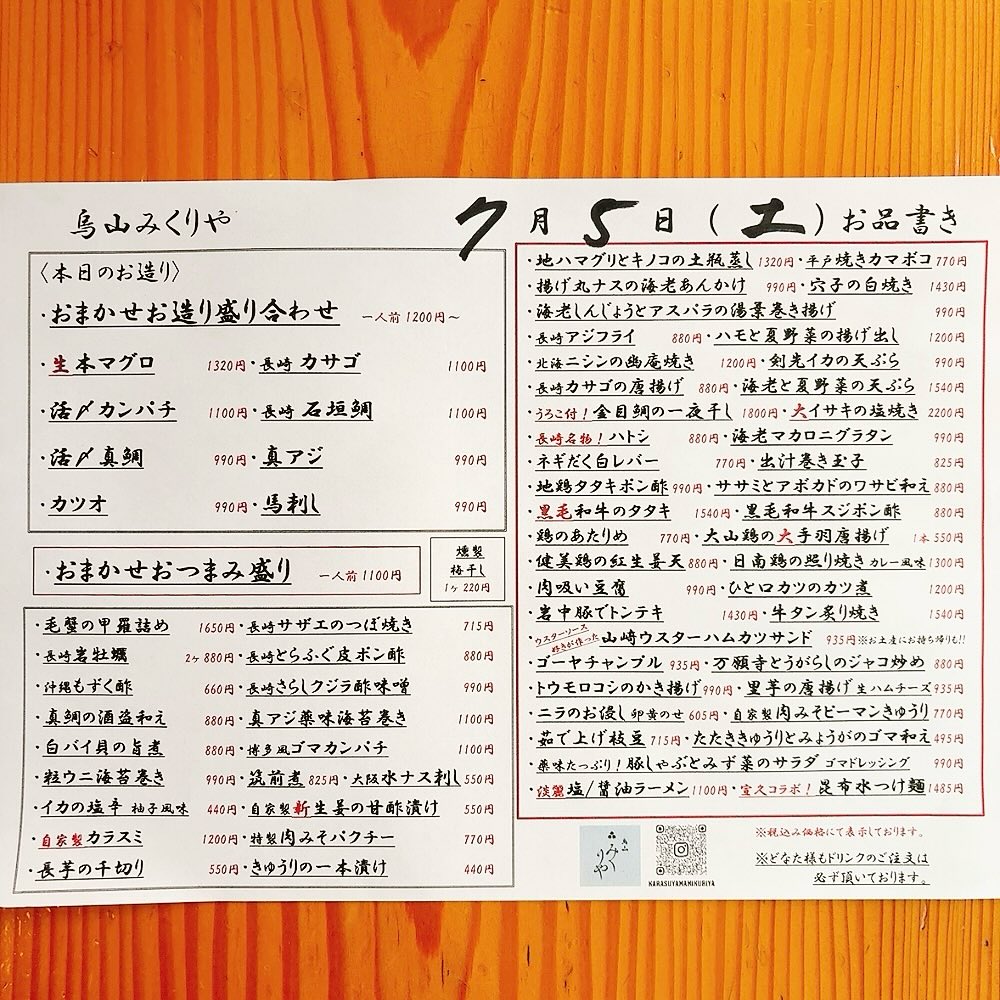 烏山みくりや
7月5日(土)お品書き
〈本日のお造り〉
・おまかせお造り盛り合わせ 一人前1200円～
・生本マグロ 1320円・長崎カサゴ 1100円
・活〆カンパチ 1100円・長崎石垣鯛 1100円
・活〆真鯛 990円・真アジ 990円
・カツオ 990円・馬刺し 990円
・おまかせおつまみ盛り 一人前1100円
燻製
梅干し
1ヶ220円
・毛蟹の甲羅詰め 1650円・長崎サザエのつぼ焼き 715円
・長崎岩牡蠣 2ヶ880円・長崎とらふぐ皮ポン酢 880円
・沖縄もずく酢 660円・長崎さらしクジラ酢味噌 990円
・真鯛の酒盗和え 880円・真アジ薬味海苔巻き 1100円
・白バイ貝の旨煮 880円・博多風ゴマカンパチ 1100円
・粒ウニ海苔巻き 990円・筑前煮 825円・大阪水ナス刺し 550円
・イカの塩辛 柚子風味 440円・自家製新生姜の甘酢漬け 550円
・自家製カラスミ 1200円・特製肉みそパクチー 770円
・長芋の千切り 550円・きゅうりの一本漬け 440円
・地ハマグリとキノコの土瓶蒸し 1320円・平戸焼きカマボコ 770円
・揚げ丸ナスの海老あんかけ 990円・穴子の白焼き 1430円
・海老しんじょうとアスパラの湯葉巻き揚げ 990円
・長崎アジフライ 880円・ハモと夏野菜の揚げ出し 1200円
・北海ニシンの幽庵焼き 1200円・剣先イカの天ぷら 990円
・長崎カサゴの唐揚げ 880円・海老と夏野菜の天ぷら 1540円
・うろこ付！金目鯛の一夜干し 1800円・大イサキの塩焼き 2200円
・長崎名物！ハトシ 880円・海老マカロニグラタン 990円
・ネギだく白レバー 770円・出汁巻き玉子 825円
・地鶏タタキポン酢 990円・ササミとアボカドのワサビ和え 880円
・黒毛和牛のタタキ 1540円・黒毛和牛スジポン酢 880円
・鶏のあたりめ 770円・大山鶏の大手羽唐揚げ 1本550円
・健美鶏の紅生姜天 880円・日南鶏の照り焼きカレー風味 1300円
・肉吸い豆腐 990円・ひと口カツのカツ煮 1200円
・岩中豚でトンテキ 1430円・牛タン炙り焼き 1540円
・ウスターソース好きが作った山崎ウスターハムカツサンド 935円※お土産にお持ち帰りも!!
・ゴーヤチャンプル 935円・万願寺とうがらしのジャコ炒め 880円
・トウモロコシのかき揚げ 990円・里芋の唐揚げ生ハムチーズ 935円
・ニラのお浸し 卵黄のせ 605円・自家製肉みそピーマンきゅうり 770円
・茹で上げ枝豆 715円・たたききゅうりとみょうがのゴマ和え 495円
・薬味たっぷり！豚しゃぶとみず菜のサラダ ゴマドレッシング 990円
・淡麗塩/醤油ラーメン 1100円・宣久コラボ！昆布水つけ麺 1485円
烏山
みくりや
KARASUYAMAMIKURIYA
※税込み価格にて表示しております。
※どなた様もドリンクのご注文は
必ず頂いております。